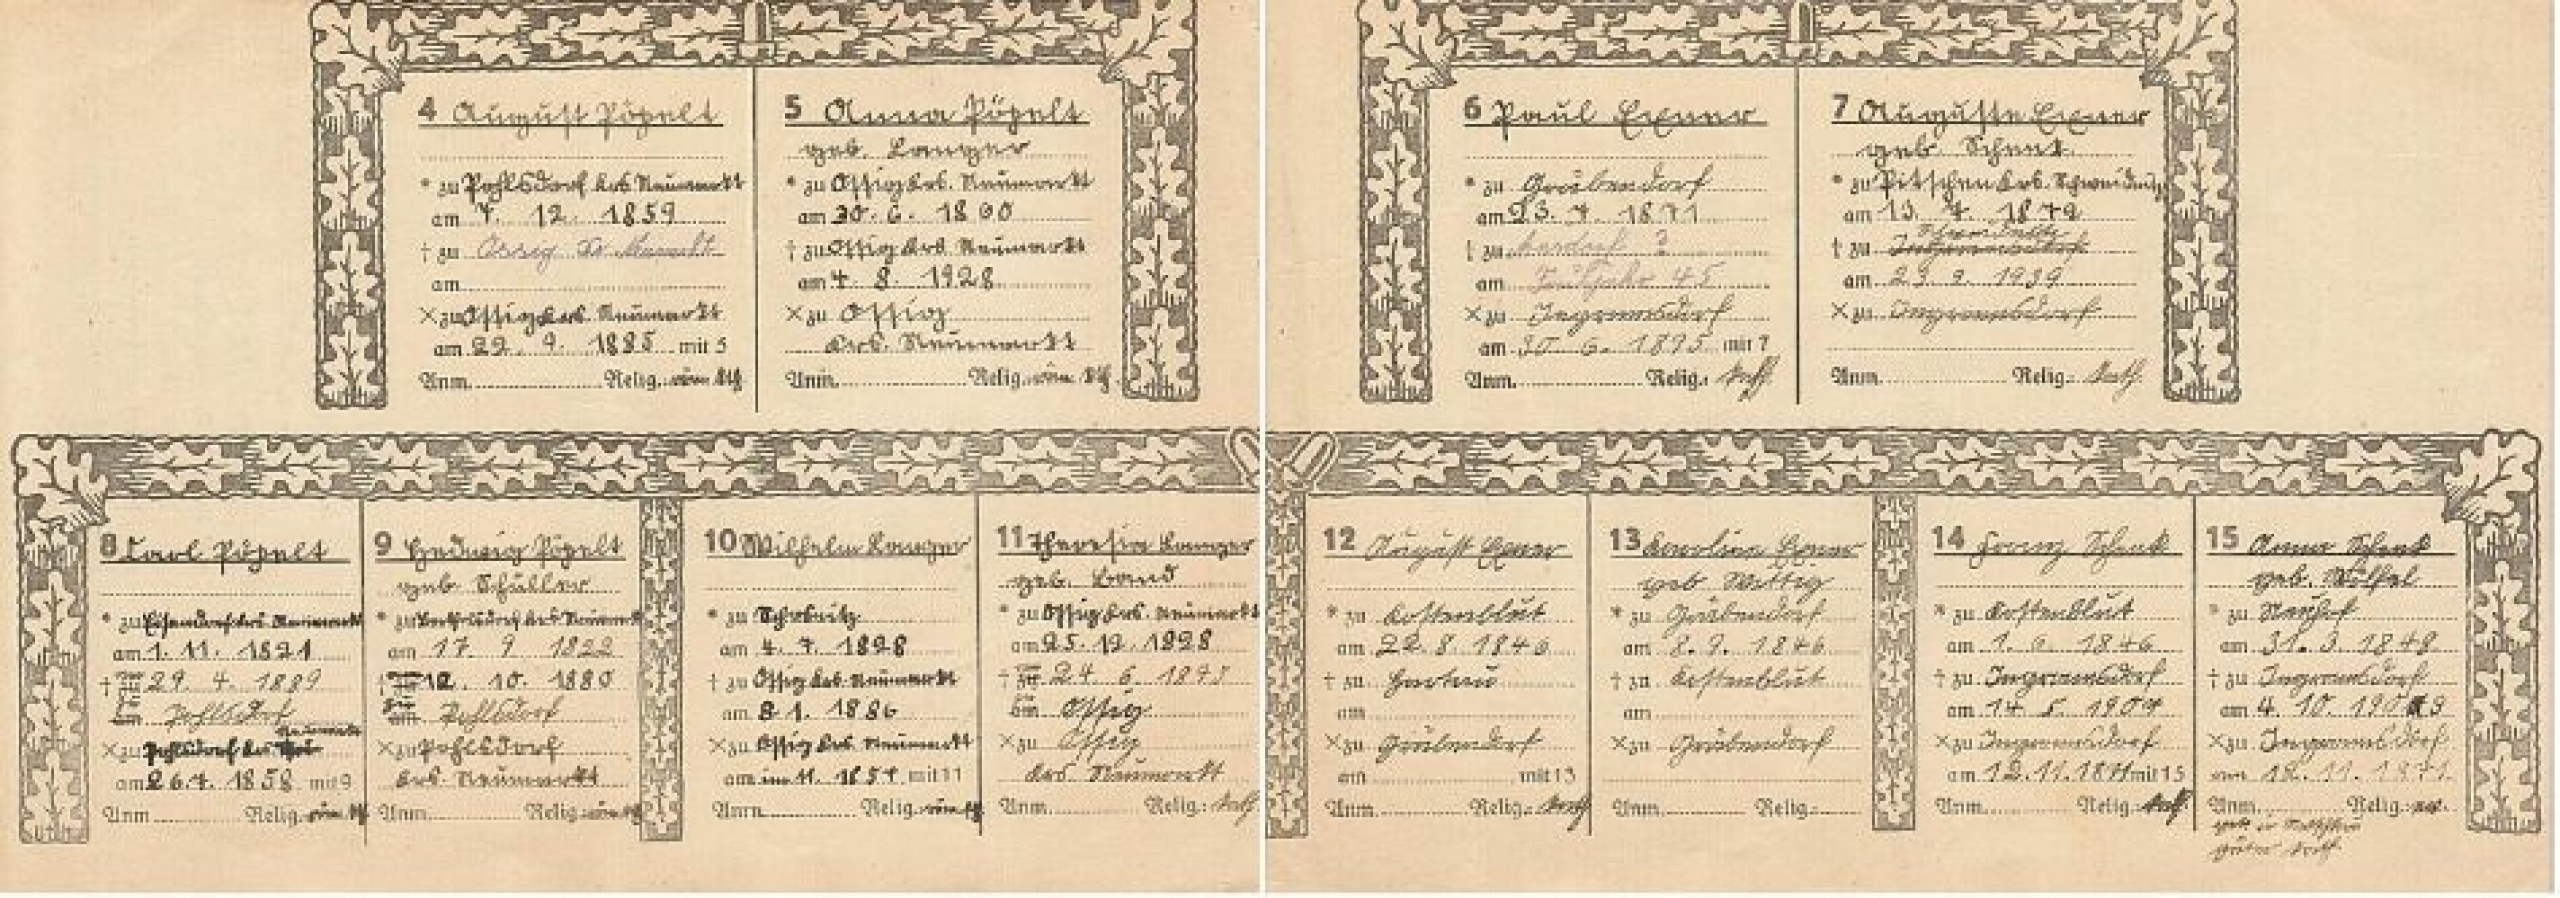 4 August Pöpelt
* zu Pohlsdorf Krs. Neumarkt
am 7. 12. 1859
† zu Ossig Kr. Neumarkt
am
× zu Ossig Krs. Neumarkt
am 22. 9. 1885 mit 5
Anm. Relig. röm. kth.
5 Anna Pöpelt
geb. Langer
* zu Ossig Krs. Neumarkt
am 30. 6. 1860
† zu Ossig Krs. Neumarkt
am 4. 8. 1928
× zu Ossig
Krs. Neumarkt
Anm. Relig. röm. kth.
6 Paul Exner
* zu Gräbendorf
am 23. 7. 1871
† zu
am Frühjahr 45
× zu Ingramsdorf
am 30. 6. 1895 mit 7
Anm. Relig.: kath.
7 Auguste Exner
geb. Schenk
* zu Pitschen Krs. Schweidnitz
am 13. 7. 1872
† zu Ingramsdorf
am 23. 2. 1939
× zu Ingramsdorf
Anm. Relig.: kath.
8 Carl Pöpelt
* zu Eisendorf Krs. Neumarkt
am 1. 11. 1821
† zu 29. 4. 1889
am Pohlsdorf
Neumarkt
× zu Pohlsdorf Krs.
am 26.4. 1858 mit 9
Anm. Relig. röm. kth.
9 Hedwig Pöpelt
geb. Schüller
* zu Krs. Neumarkt
am 17. 9 1822
† zu 12. 10. 1880
am Pohlsdorf
× zu Pohlsdorf
Krs. Neumarkt
Anm. Relig. röm. kth.
10 Wilhelm Langer
* zu
am 4. 7. 1828
† zu Ossig Krs. Neumarkt
am 8 1. 1886
× zu Ossig Krs. Neumarkt
am im 11. 1857 mit 11
Anm. Relig. röm. kth.
11 Theresia Langer
geb. Band
* zu Ossig Krs. Neumarkt
am 25. 12. 1828
† zu 24. 6. 1897
am Ossig
× zu Ossig
Krs. Neumarkt
Anm. Relig.: kath.
12 August Exner
* zu Kostenblut
am 22. 8. 1846
† zu
am
× zu Gräbendorf
am mit 13
Anm. Relig.: kath.
13 Karoline Exner
geb Wittig
* zu Gräbendorf
am 8. 9. 1846
† zu Kostenblut
am
× zu Gräbendorf
Anm. Relig.
14 Franz Schenk
* zu Kostenblut
am 1. 6. 1846
† zu Ingramsdorf
am 14. 5. 1904
× zu Ingramsdorf
am 12.11.1871 mit 15
Anm. Relig.: kath.
15 Anna Schenk
geb. Wölfel
* zu Neuhof
am 31. 3. 1848
† zu Ingramsdorf
am 4. 10.
× zu Ingramsdorf
am 12. 11. 1871
Anm. Relig.: ev.
später kath.